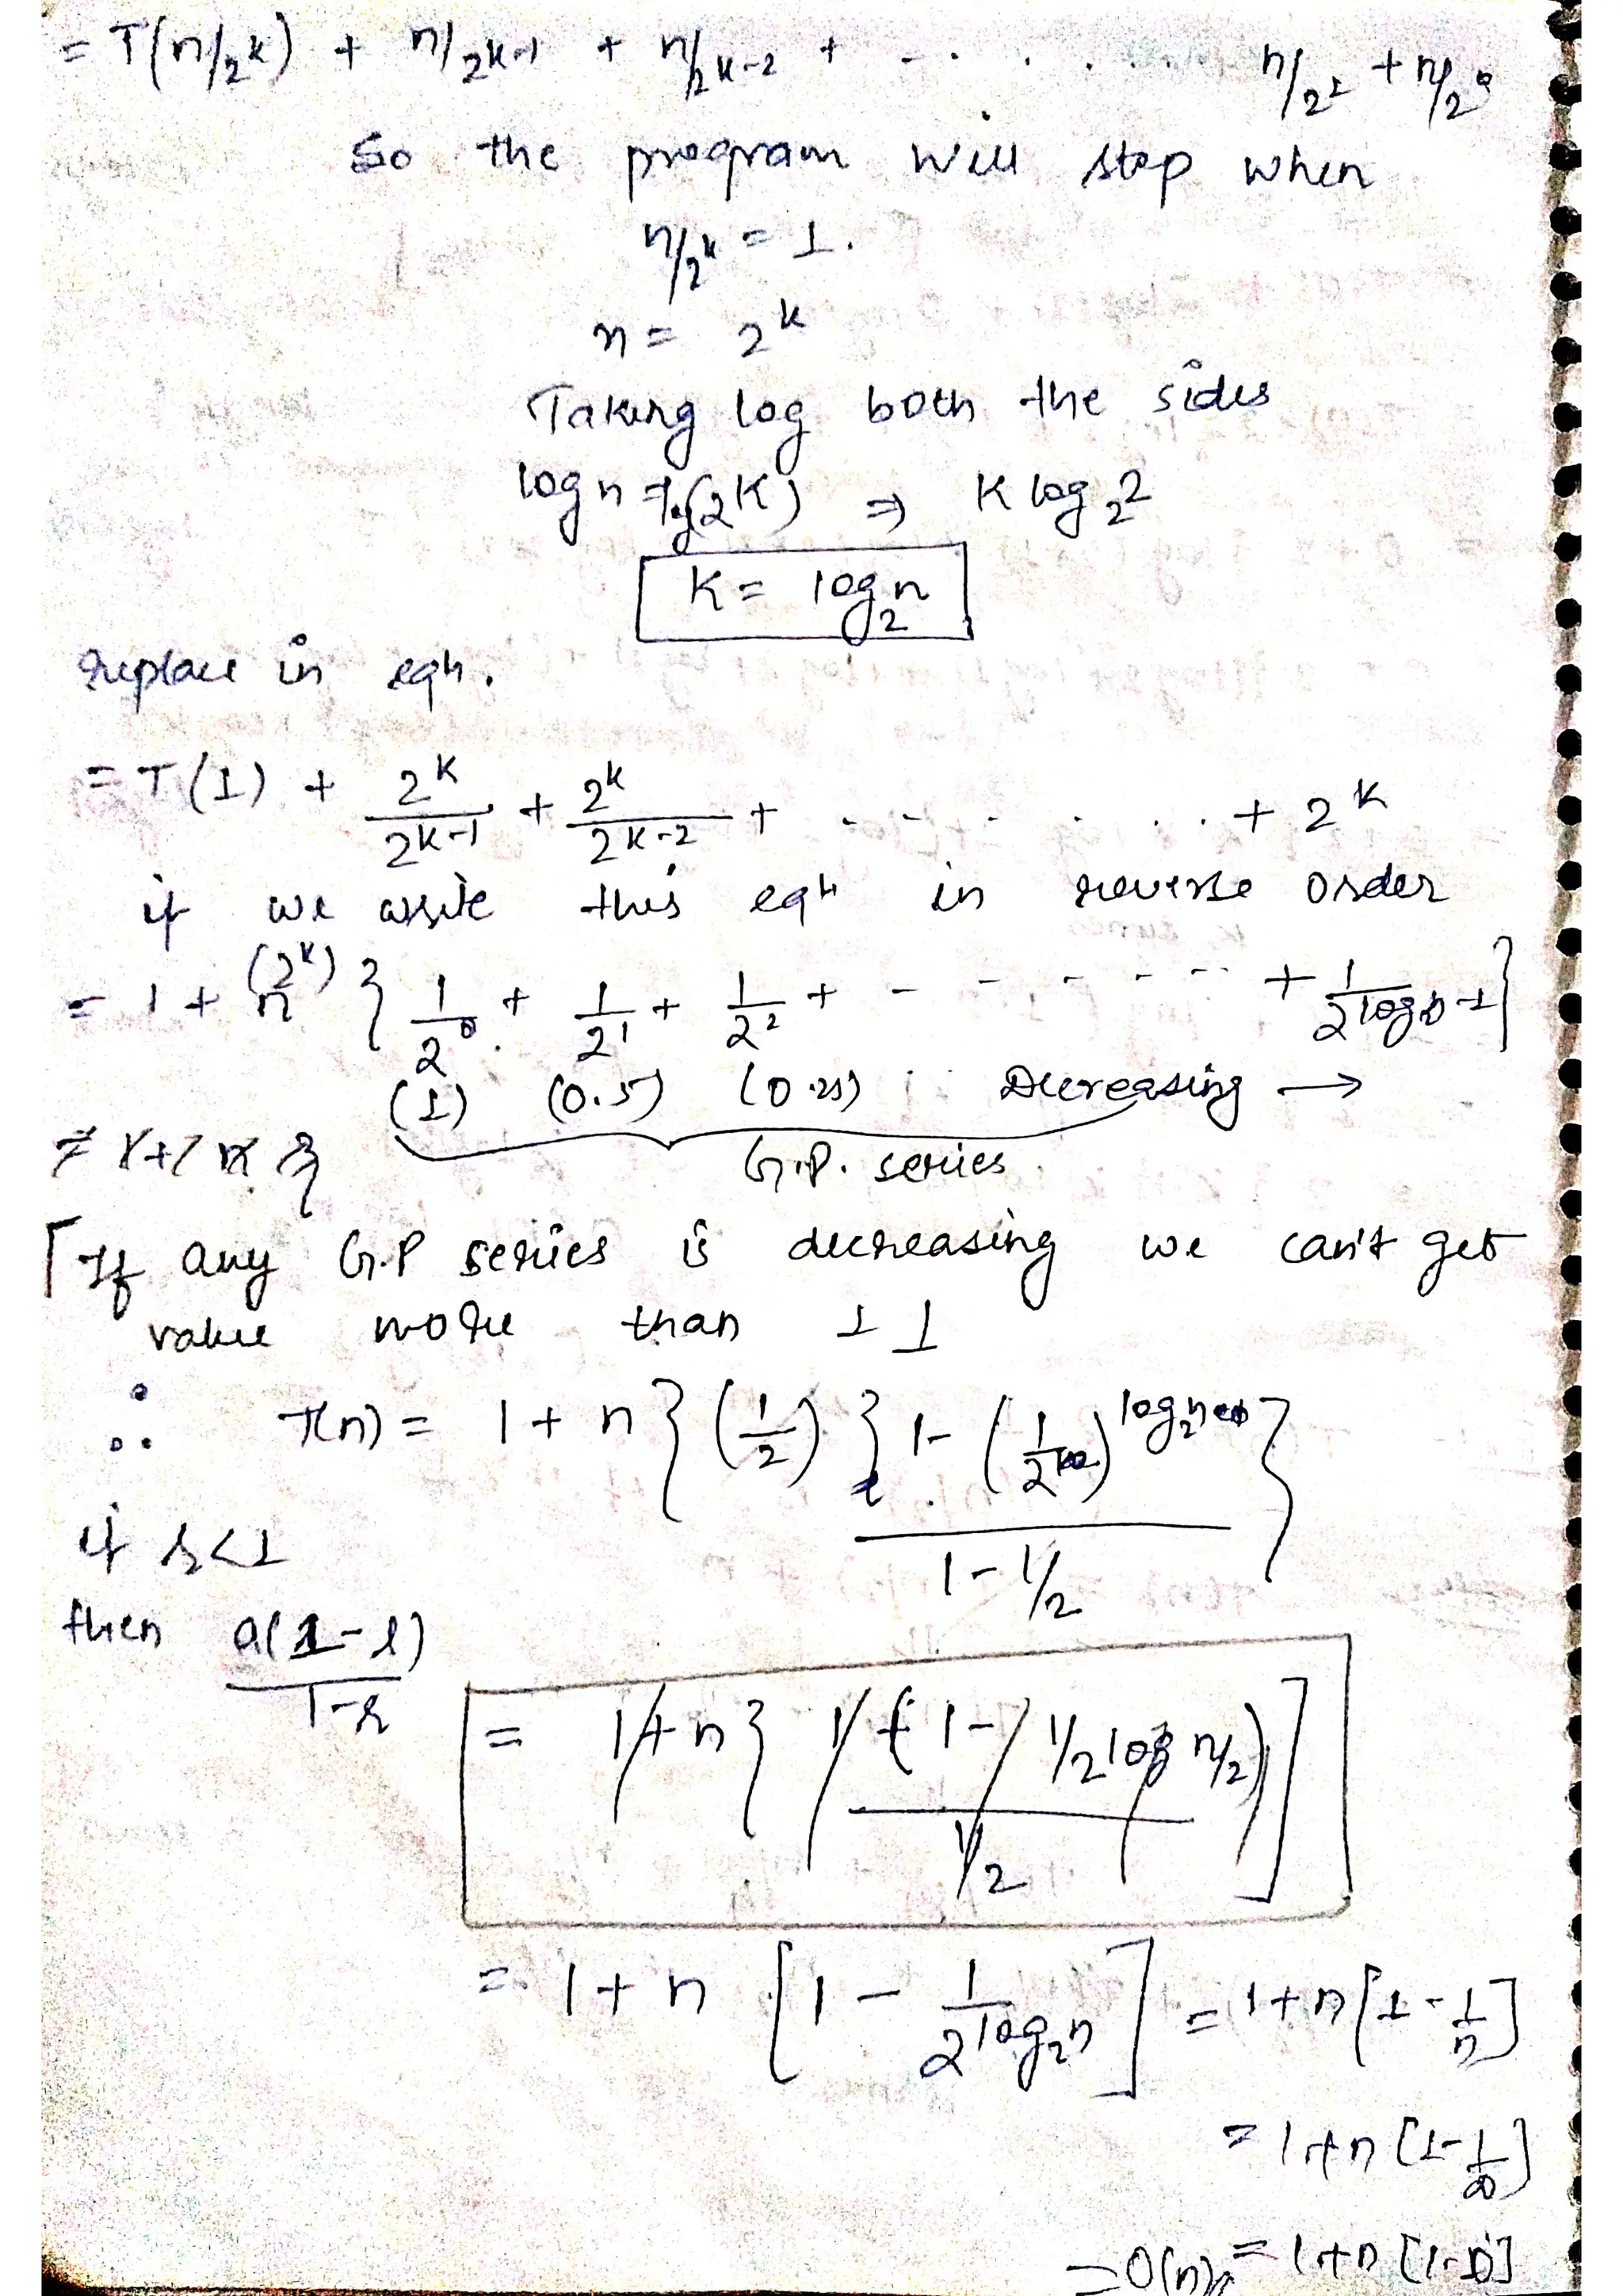 = T(n/2^k) + n/2^k-1 + n/2^k-2 + - . . . . . n/2^1 + n/2^0
So the program will stop when
n/2^k = 1.
n = 2^k
Taking log both the sides
log n = log(2^k) ⇒ K log_2 2
K = log_2 n
replace in eqn.
= T(1) + 2^k/2^k-1 + 2^k/2^k-2 + - - - . . . . + 2^k
if we write this eqn in reverse order
= 1 + n (2^k) { 1/2^0 + 1/2^1 + 1/2^2 + - - - - - - + 1/2^log n-1 }
(1) (0.5) (0.25) Decreasing →
G.P. series
If any G.P series is decreasing we can't get
value more than 1 1
∴ T(n) = 1 + n { (1/2) { 1 - (1/2)^log_2 n } / 1 - 1/2 }
if r<1
then a(1-r)/1-r
= 1+n { 1 (1 - 1/2 log n/2) / 1/2 ]
= 1 + n [ 1 - 1/2^log_2 n ] = 1+n [1 - 1/n]
= 1+n [1 - 1/∞]
= O(n) = 1+n [1-0]